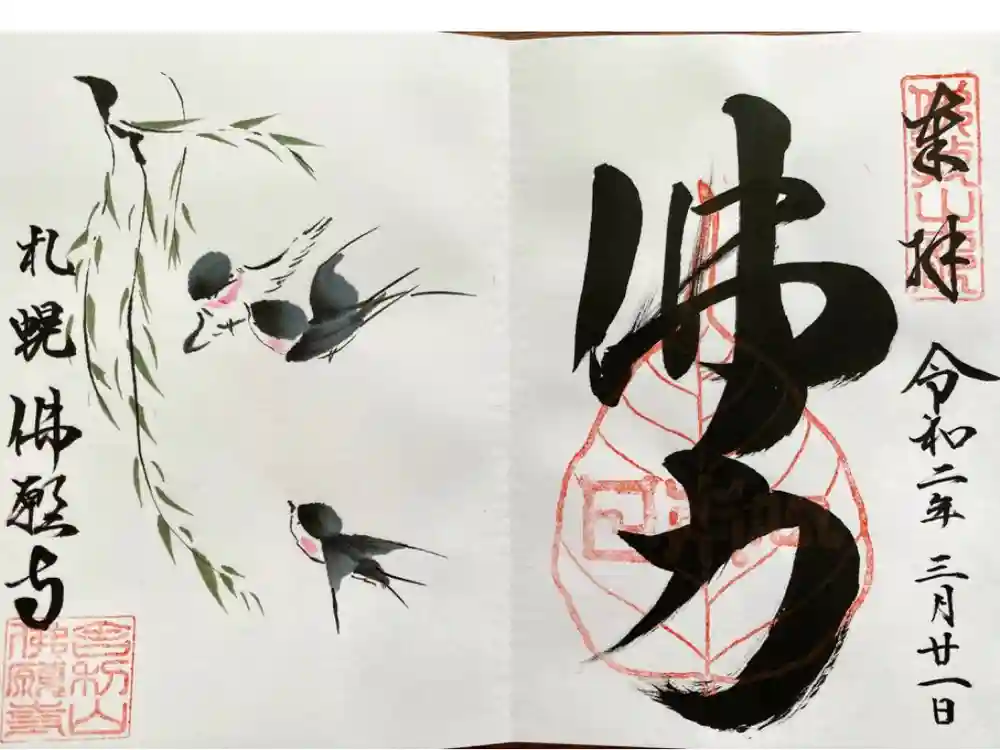 奉拝
令和二年 三月廿一日
佛力
札幌佛願寺